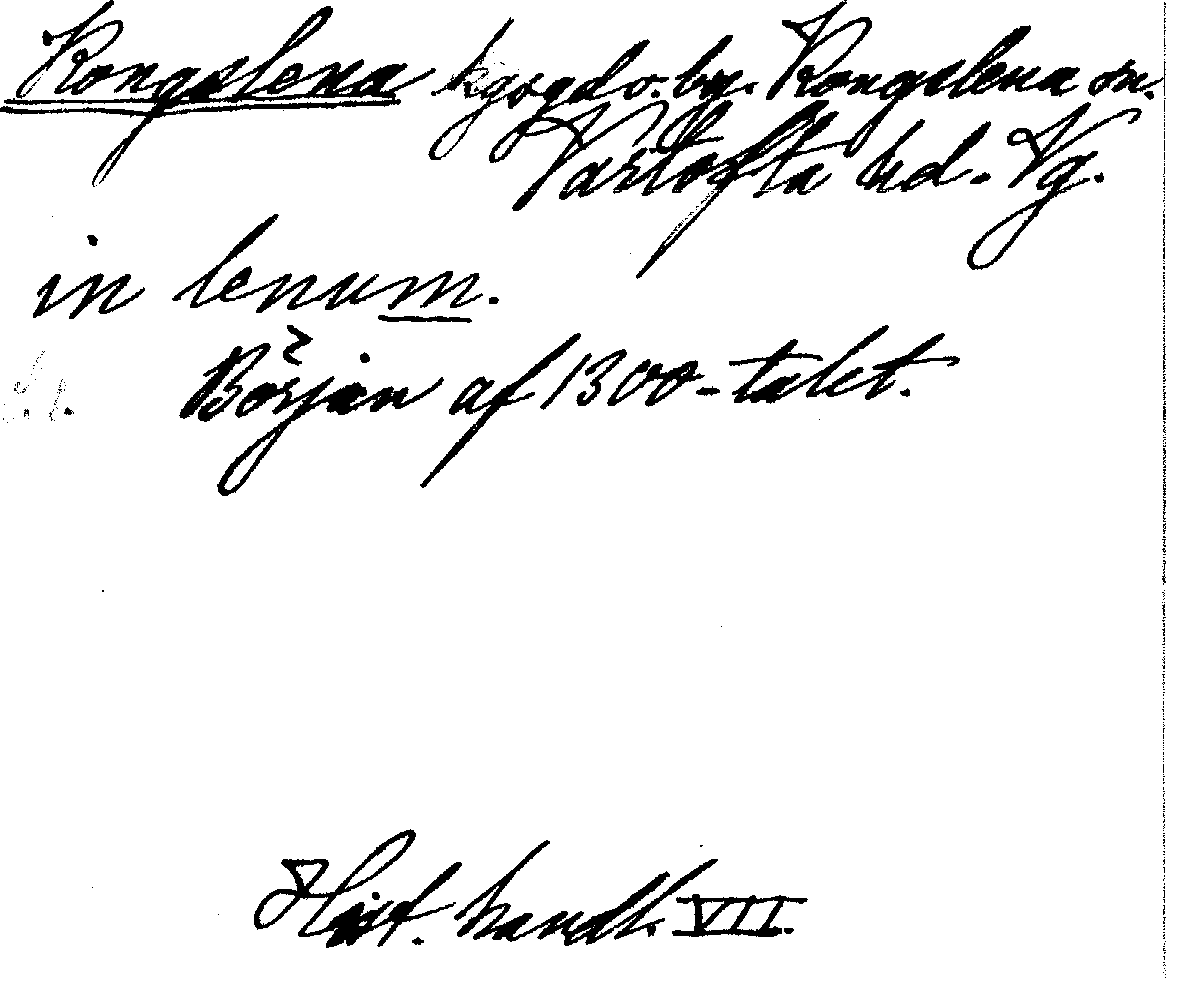 Kongslena kgsgd o. by. Kongslena sn.
Vartofta hd. Vg.
in lenum.
Början af 1300-talet.
Hist. handl. VII.